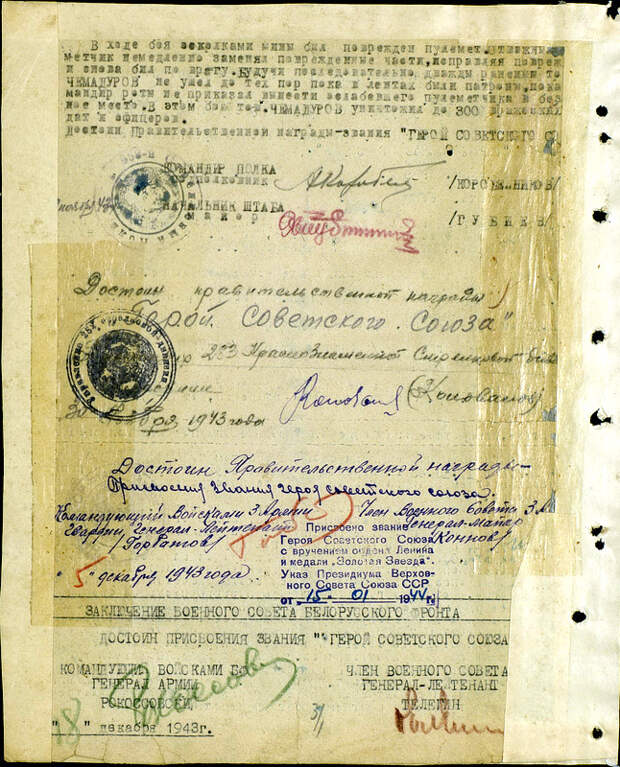 В ходе боя осколками мины был поврежден пулемет. Отважный
метчик немедленно заменял поврежденные части, исправляя повреж
и снова бил по врагу. Будучи последовательно, дважды раненым то
ЧЕМАДУРОВ не ушел до тех пор пока в лентах были патроны, пока
мандир роты не приказал вынести ослабевшего пулеметчика в без
ное место. В этом бою тов. ЧЕМАДУРОВ уничтожил до 300 вражеских
дат и офицеров.
Достоин Правительственной награды-звания "ГЕРОЙ СОВЕТСКОГО СО
КОМАНДИР ПОЛКА
подполковник /КОРОБЕЙНИКОВ/
НАЧАЛЬНИК ШТАБА
майор /ГУБИЕВ/
Достоин правительственной награды
"Герой Советского Союза"
283 Краснознаменной Стрелковой
1943 года (Коновалов)
Достоин Правительственной награды-
Присвоения звания героя советского союза.
Командующий Войсками 3 Армии Член Военного Совета 3 А
Генерал-Лейтенант Генерал-Майор
/Горбатов/ /Коннов/
"5" декабря 1943 года.
Присвоено звание
Героя Советского Союза
с вручением ордена Ленина
и медали „Золотая Звезда".
Указ Президиума Верхов-
ного Совета Союза ССР
от "15" 01 1944 г.
ЗАКЛЮЧЕНИЕ ВОЕННОГО СОВЕТА БЕЛОРУССКОГО ФРОНТА
ДОСТОИН ПРИСВОЕНИЯ ЗВАНИЯ "ГЕРОЙ СОВЕТСКОГО СОЮЗА
КОМАНДУЮЩИЙ ВОЙСКАМИ БФ ЧЛЕН ВОЕННОГО СОВЕТА
ГЕНЕРАЛ АРМИИ ГЕНЕРАЛ-ЛЕЙТЕНАНТ
РОКОССОВСКИЙ ТЕЛЕГИН
"18" декабря 1943г.